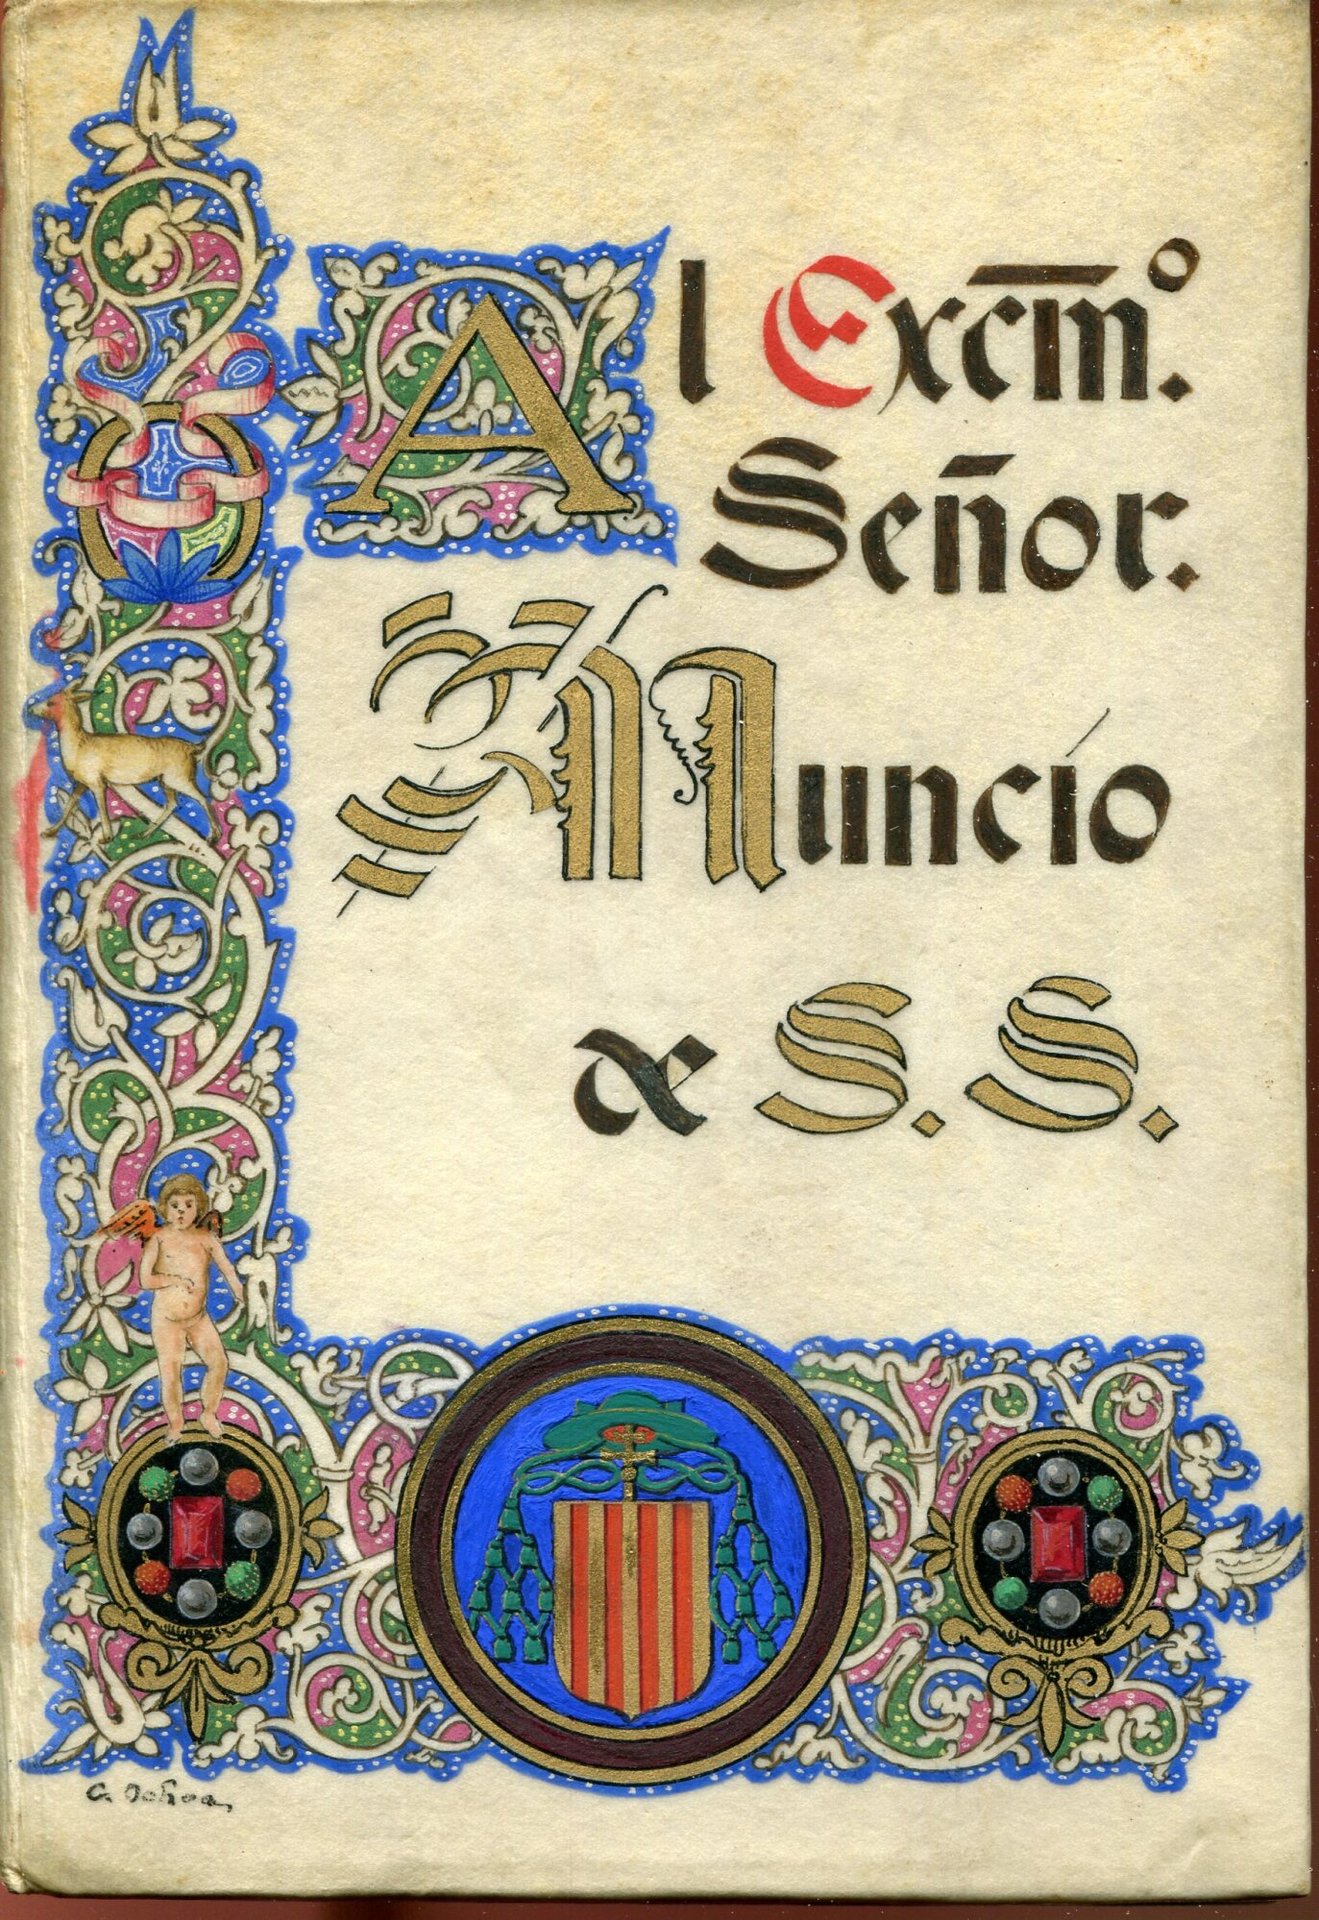 Al Excmº.
Señor.
Nuncio
de S. S.
G. Ochoa,